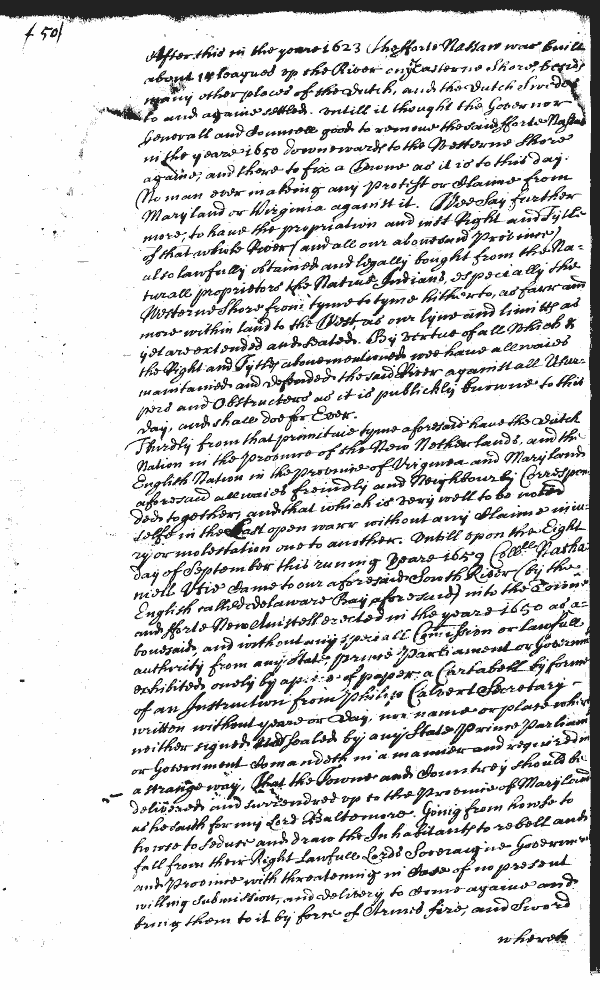 f 50
After this in the yeare 1623 the fforte Nassaw was built
about 14 leagues vp the River on ye Easterne Shore, besids
many other places of the Dutch, and the Dutch Swedes
to and againe setled. Untill it thought the Governor
Generall and Councell good to remove the said fforte Nassaw
in the yeare 1650 downewards to the Westerne Shore
againe, and there to fix a Towne as it is to this day.
(No man ever making any Protest or Claime from
Maryland or Virginia against it. Wee Say further
more, to have the propriation and iust Right and Tytle
of that whole River (and all our abouesaid Province)
also lawfully obtained and legally bought from the Na-
turall proprietors the Native Indians, especially the
Westerne Shore from tyme to tyme hitherto, as farr and
more within land to the West, as our lyne and limitts as
yet are extended and seated. By vertue of all Which &
the Right and Tytle abouementioned wee have all waies
maintained and defended the said River against all Usur-
pers and Obstructers as it is publickly knowne to this
day, and shall doe for Ever.
Thirdly from that primitive tyme aforesaid have the Dutch
Nation in the Province of the New Netherlands, and the
English Nation in the Province of Virginea and Maryland
aforesaid all waies freindly and Neighbourly Correspon-
ded together, and that which is very well to be noted
selfe in the Last open warr without any Claime iniu-
ry or molestation one to another. Untill upon the Eight
day of September this runing Yeare 1659 Collll Natha
niell Utie Came to our aforesaid South River (by the
English called Delaware Bay aforesaid) into the Towne
and fforte New Amstell erected in the yeare 1650 as a-
bouesaid, and without any speciall Comission or lawfull
authority from any State, Prince Parliament or Governmt
exhibited onely by a peice of paper, a Cartabell by forme
of an Instruction from Philip Calvert Secretary
written without yeare or day, nor name or place where
neither signed, nor sealed by any State Prince Parliamt
or Government Comandeth in a manner and required in
a strange way, that the Towne and Countrey should be
delivered and surrendred up to the Province of Maryland
as he saith for my Lord Baltemore. Going from house to
house to seduce and draw the Inhabitants to rebell and
fall from their Right Lawfull Lords Soveraigne Governm
and Province with threatening in Case of no present
willing submission, and delivery to Come againe and
bring them to it by force of Armes fire, and Sword
whereto